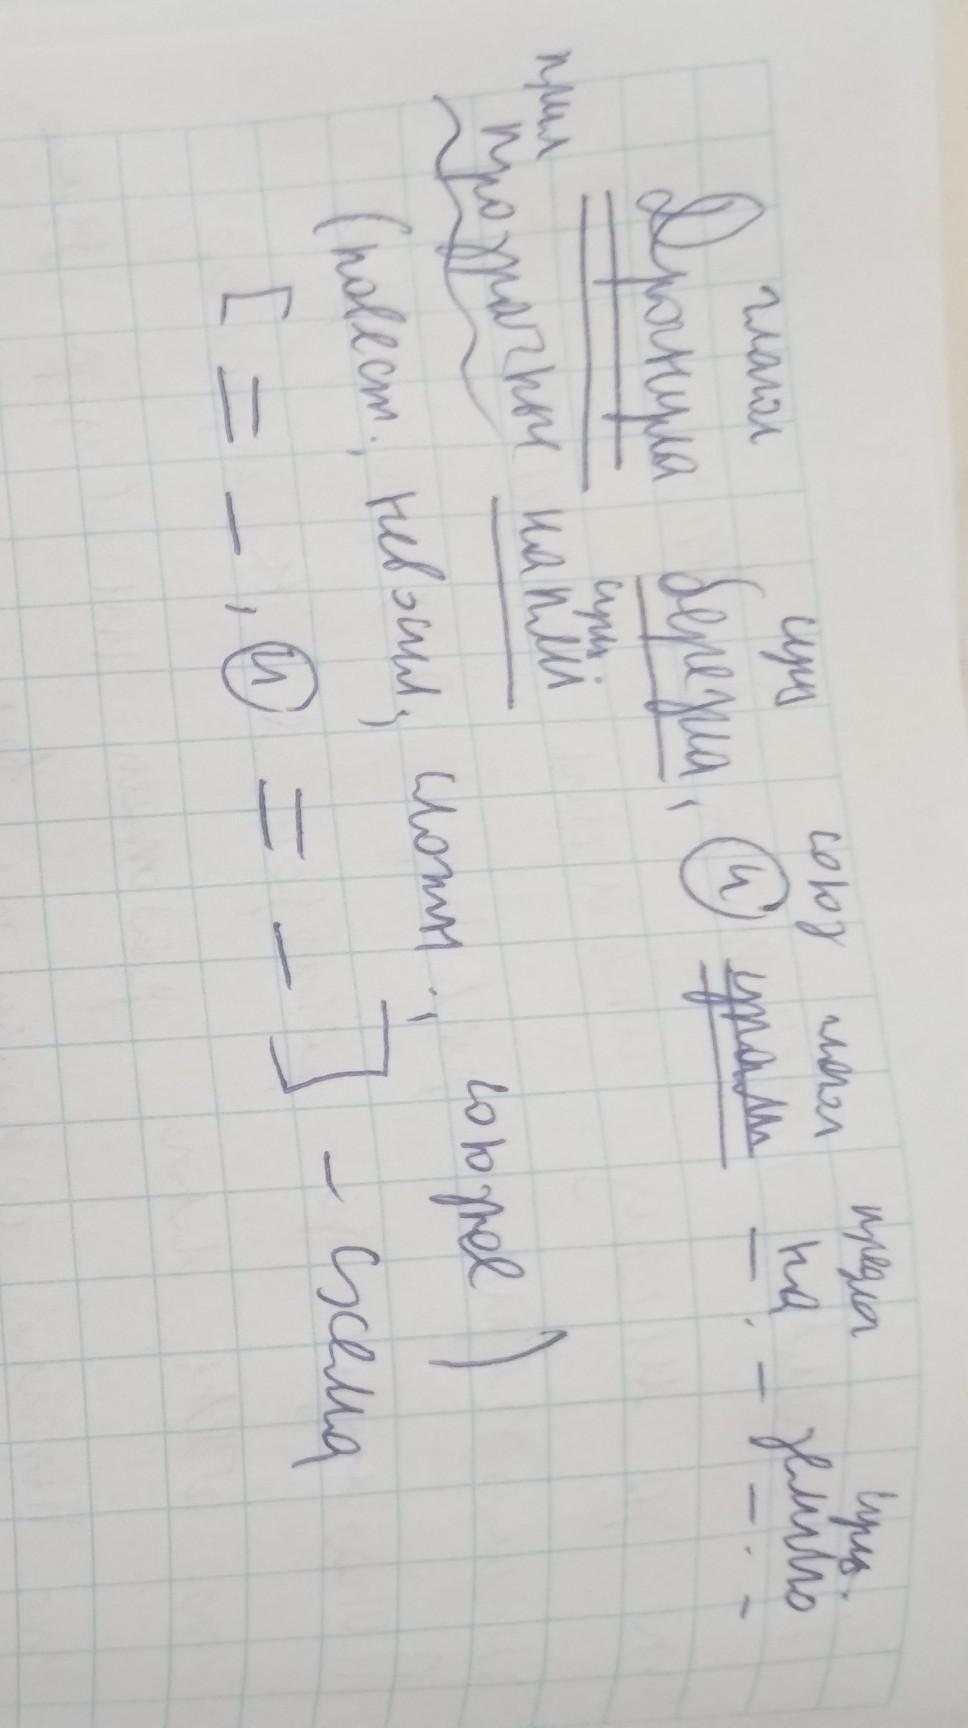 глагол сущ союз глагол предлог сущ.
Дрогнула березка, и упали на землю
прил сущ
прозрачные капли
(повест., невоскл., сложн., союзное)
[= -, и = -] - схема